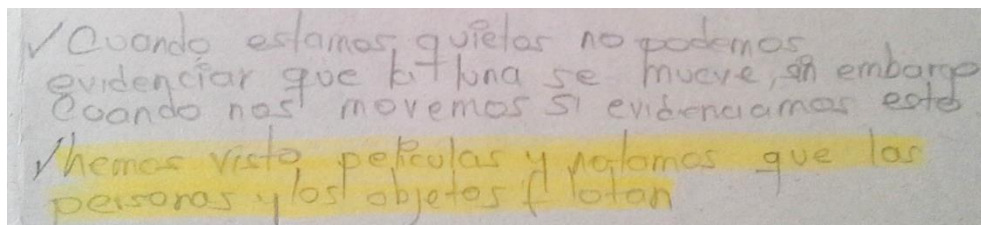 ✓ Cuando estamos quietos no podemos
evidenciar que la luna se mueve, sin embargo
Cuando nos movemos si evidenciamos esto
✓ hemos visto peliculas y notamos que las
personas y los objetos flotan